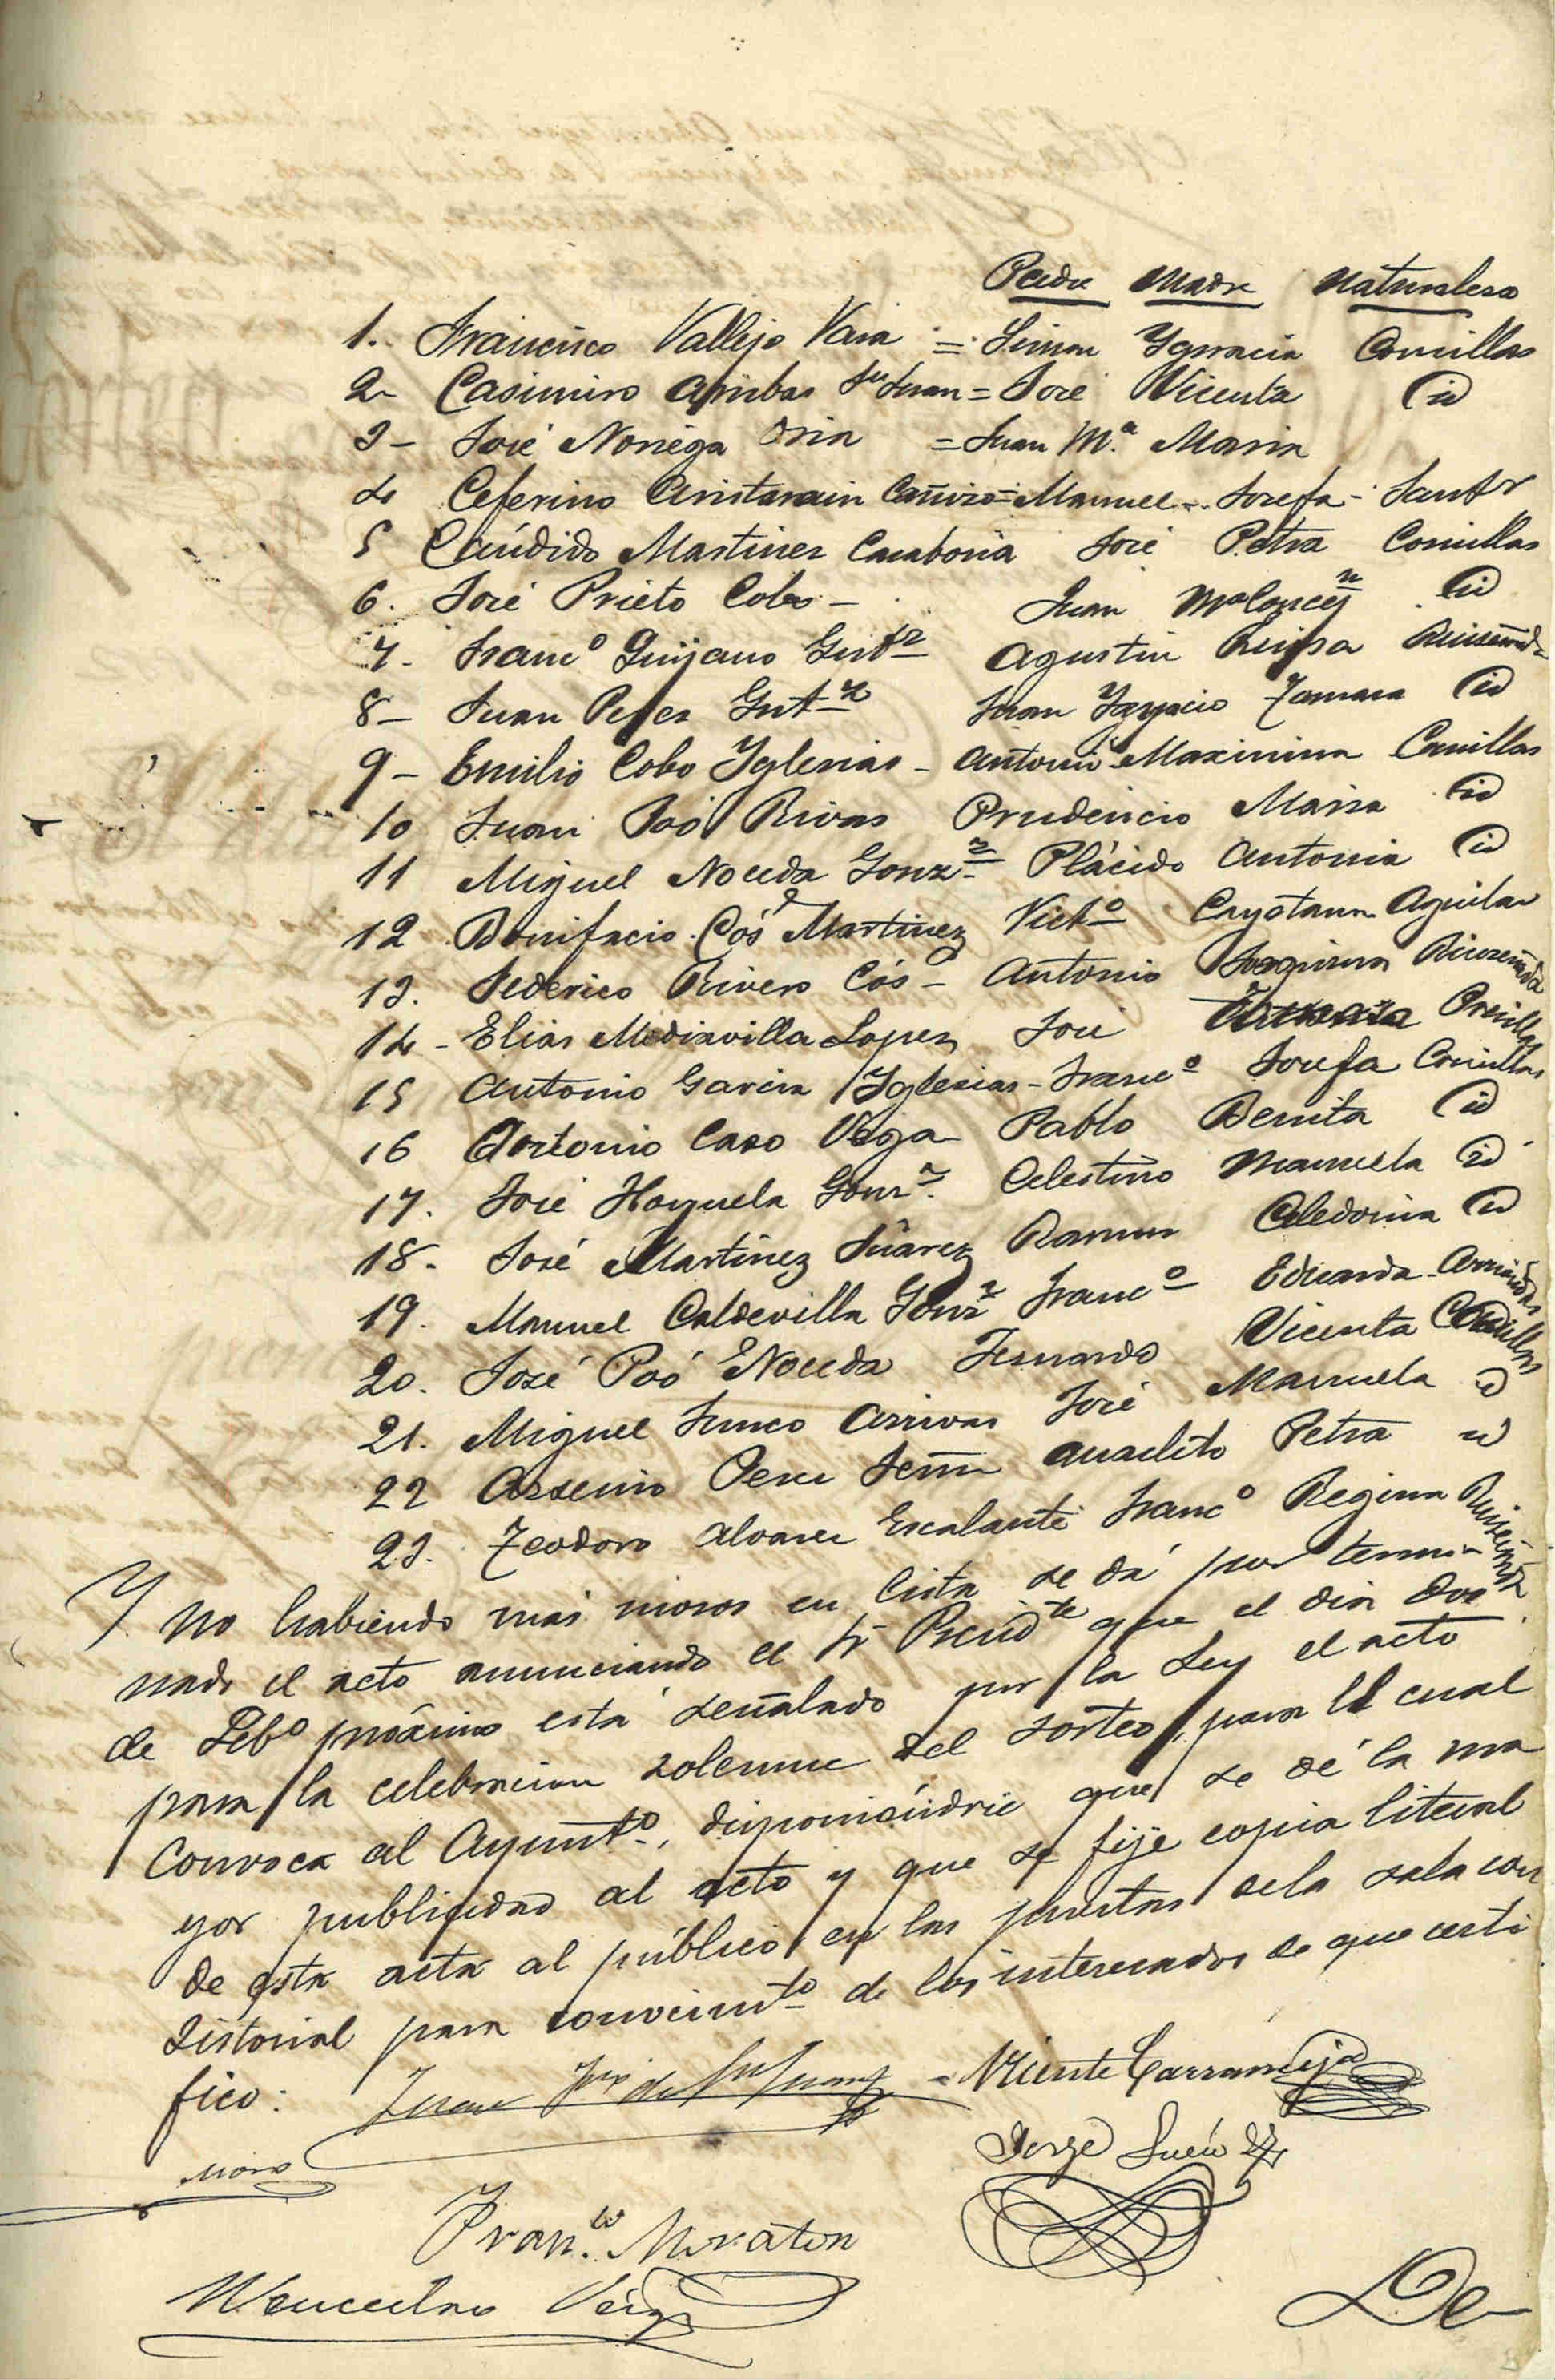 Padre Madre Naturaleza
1. Francisco Vallejo Vara = Simon Ygnacia Comillas
2- Casimiro Arribas Sn Juan = José Vicenta id
3- José Noriega Oria = Juan Mª Maria
4 Ceferino Aristarain Cañizo = Manuel - Josefa - Santr
5 Cándido Martinez José Petra Comillas
6. José Prieto Cobo - Juan Mª Concepn id
7- Francº Quijano Gutrz Agustin Luisa Ruiseñada
8- Juan Perez Gutrz Juan Ygnacio Tomasa id
9- Emilio Cobo Yglesias - Antonio Maximina Comillas
10 Juan Poó Rivas Prudencio Maria id
11 Miguel Noceda Gonzz Plácido Antonia id
12 Bonifacio Cós Martinez Victº Cayetana Aguilar
13. Federico Rivero Cós - Antonio Joaquina Ruiseñada
14 - Elias Mediavilla Lopez José Presillas
15 Antonio Garcia Yglesias - Francº Josefa Comillas
16 Antonio Caso Vega Pablo Benita id
17. José Hoyuela Gonz. Celestino Manuela id
18. José Martinez Suárez Ramon Celedonia id
19. Manuel Caldevilla Gonz Francº Eduarda
20. José Poó Noceda Fernando Vicenta Comillas
21. Miguel Junco Arrivas José Manuela id
22 Arsenio Anacleto Petra id
23. Teodoro Alvarez Escalante Francº Regina Ruiseñada
Y no habiendo más mozos en lista se dá por termi-
nado el acto anunciando el Sr Presidte que el dia dos
de Febº próximo está señalado por la Ley el acto
para la celebracion solemne del sorteo, para el cual
convoca al Ayuntº, disponiéndose que se dé la ma
yor publicidad al acto y que se fije copia literal
de esta acta al público en las puertas dela sala con
sistorial para conocimtº de los interesados de que certi
fico:
Vicente Carranceja
Jorge
Franco Moraton
Wenceslao Veiga
De